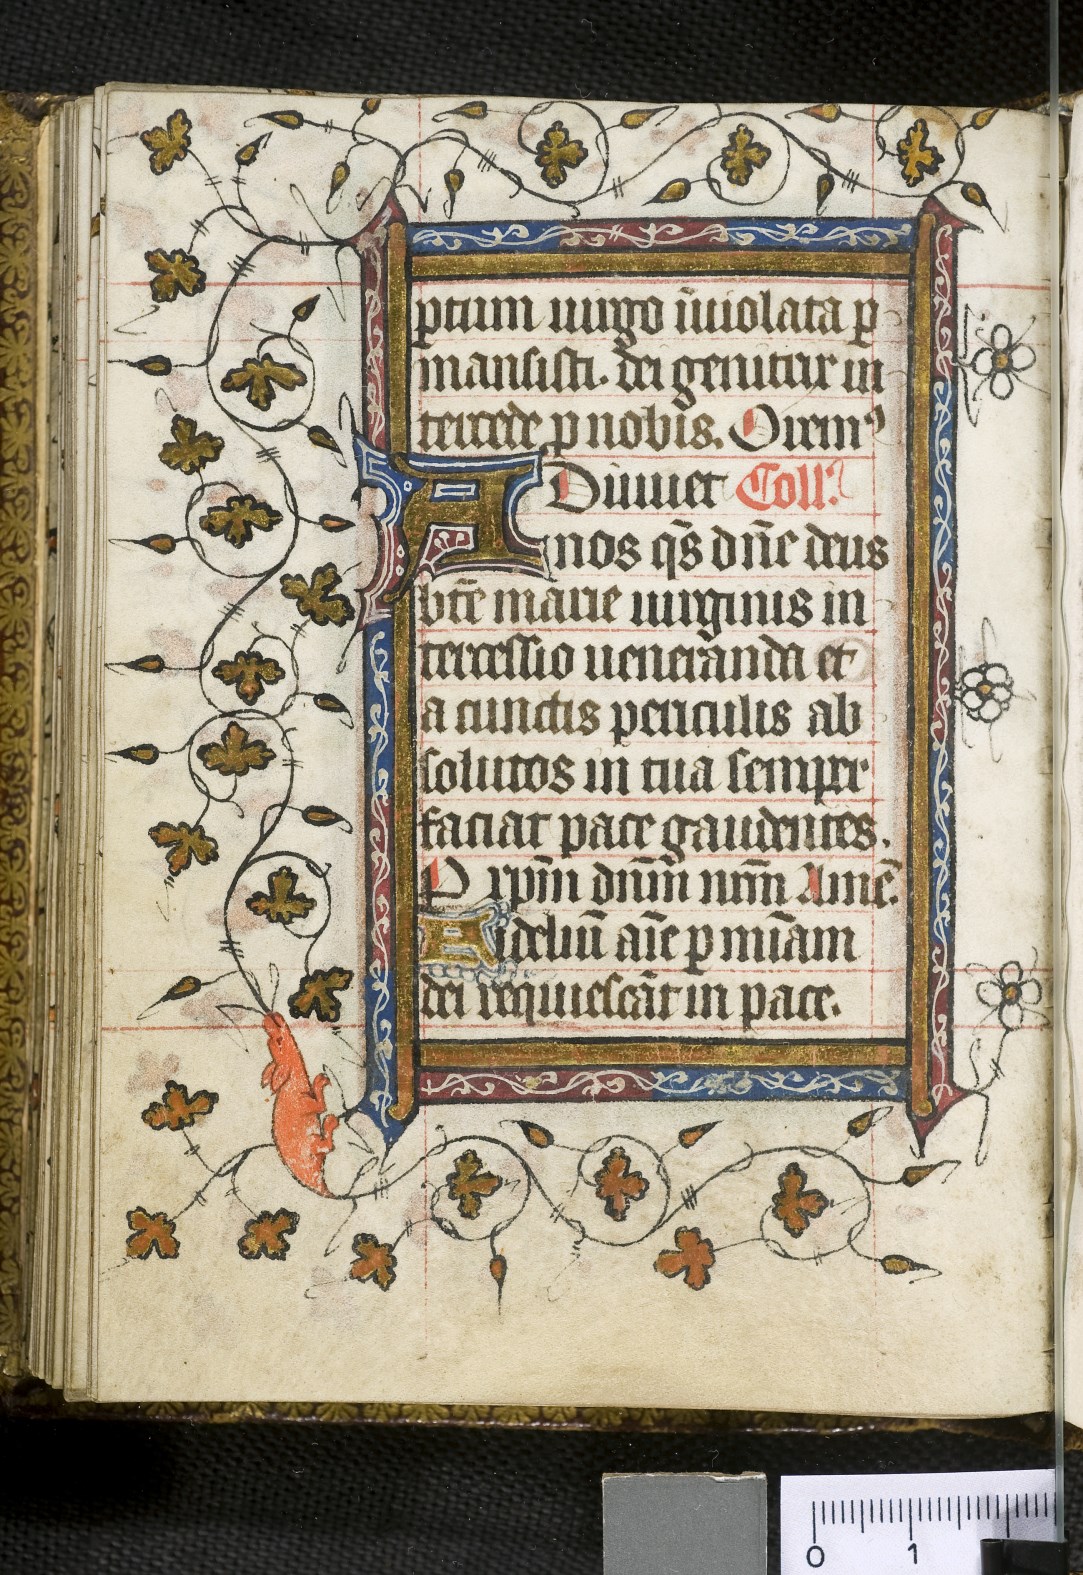 ptum uirgo īuiolata p
mansisti. dei genitrix in
tercede p nobis. Orem⁹
Adiuuet Coll'
nos q̄s dn̄e deus
bt̄e marie uirginis in
tercessio ueneranda et
a cunctis periculis ab
solutos in tua semper
faciat pace gaudentes.
P xpm̄ dnm̄ nrm̄ Amē.
Fideliū aīe p mīam
dei requiescāt in pace.
0 1